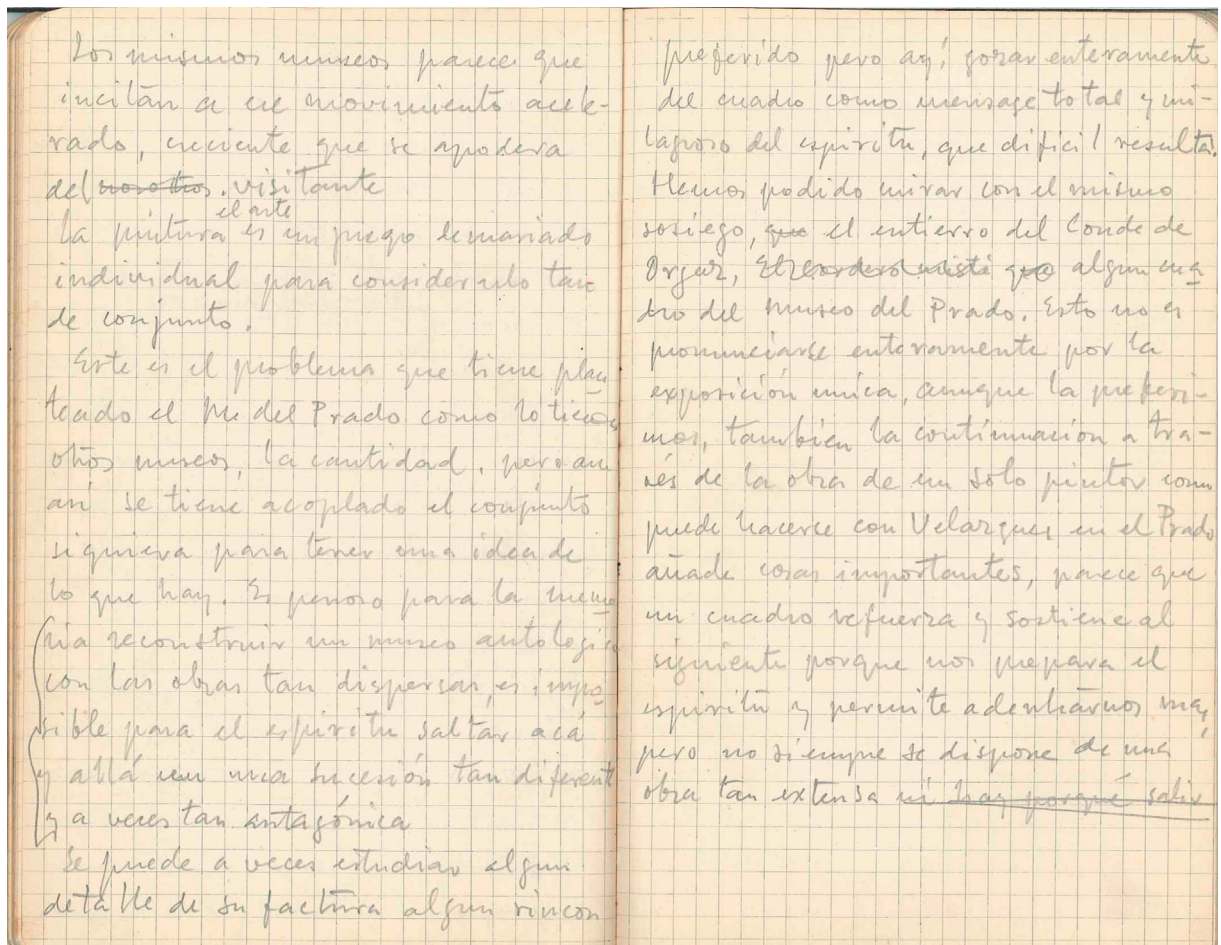 Los mismos museos parece que
incitan a ese movimiento acele-
rado, creciente que se apodera
del nosotros. visitante
el arte
La pintura es un juego demasiado
individual para considerarlo tan
de conjunto.
Este es el problema que tiene plan
teado el Mu del Prado como lo tienen
otros museos, la cantidad, pero aun
asi se tiene acoplado el conjunto
siquiera para tener una idea de
lo que hay. Es penoso para la memo
ria reconstruir un museo antologico
con las obras tan dispersas, es impo
sible para el espiritu saltar acá
y allá en una sucesión tan diferente
y a veces tan antagónica
Se puede a veces estudiar algun
detalle de su factura algun rincon
preferido pero aqi, gozar enteramente
del cuadro como mensage total y mi-
lagroso del espiritu, que dificil resulta.
Hemos podido mirar con el mismo
sosiego, que el entierro del Conde de
Orgaz, que algun cua
dro del museo del Prado. Esto no es
pronunciarse enteramente por la
exposición unica, aunque la preferi-
mos, tambien la continuacion a tra-
vés de la obra de un solo pintor como
puede hacerse con Velazquez en el Prado
añade cosas importantes, parece que
un cuadro refuerza y sostiene al
siguiente porque nos prepara el
espiritu y permite adentrarnos mas,
pero no siempre se dispone de una
obra tan extensa ni hay porqué salir